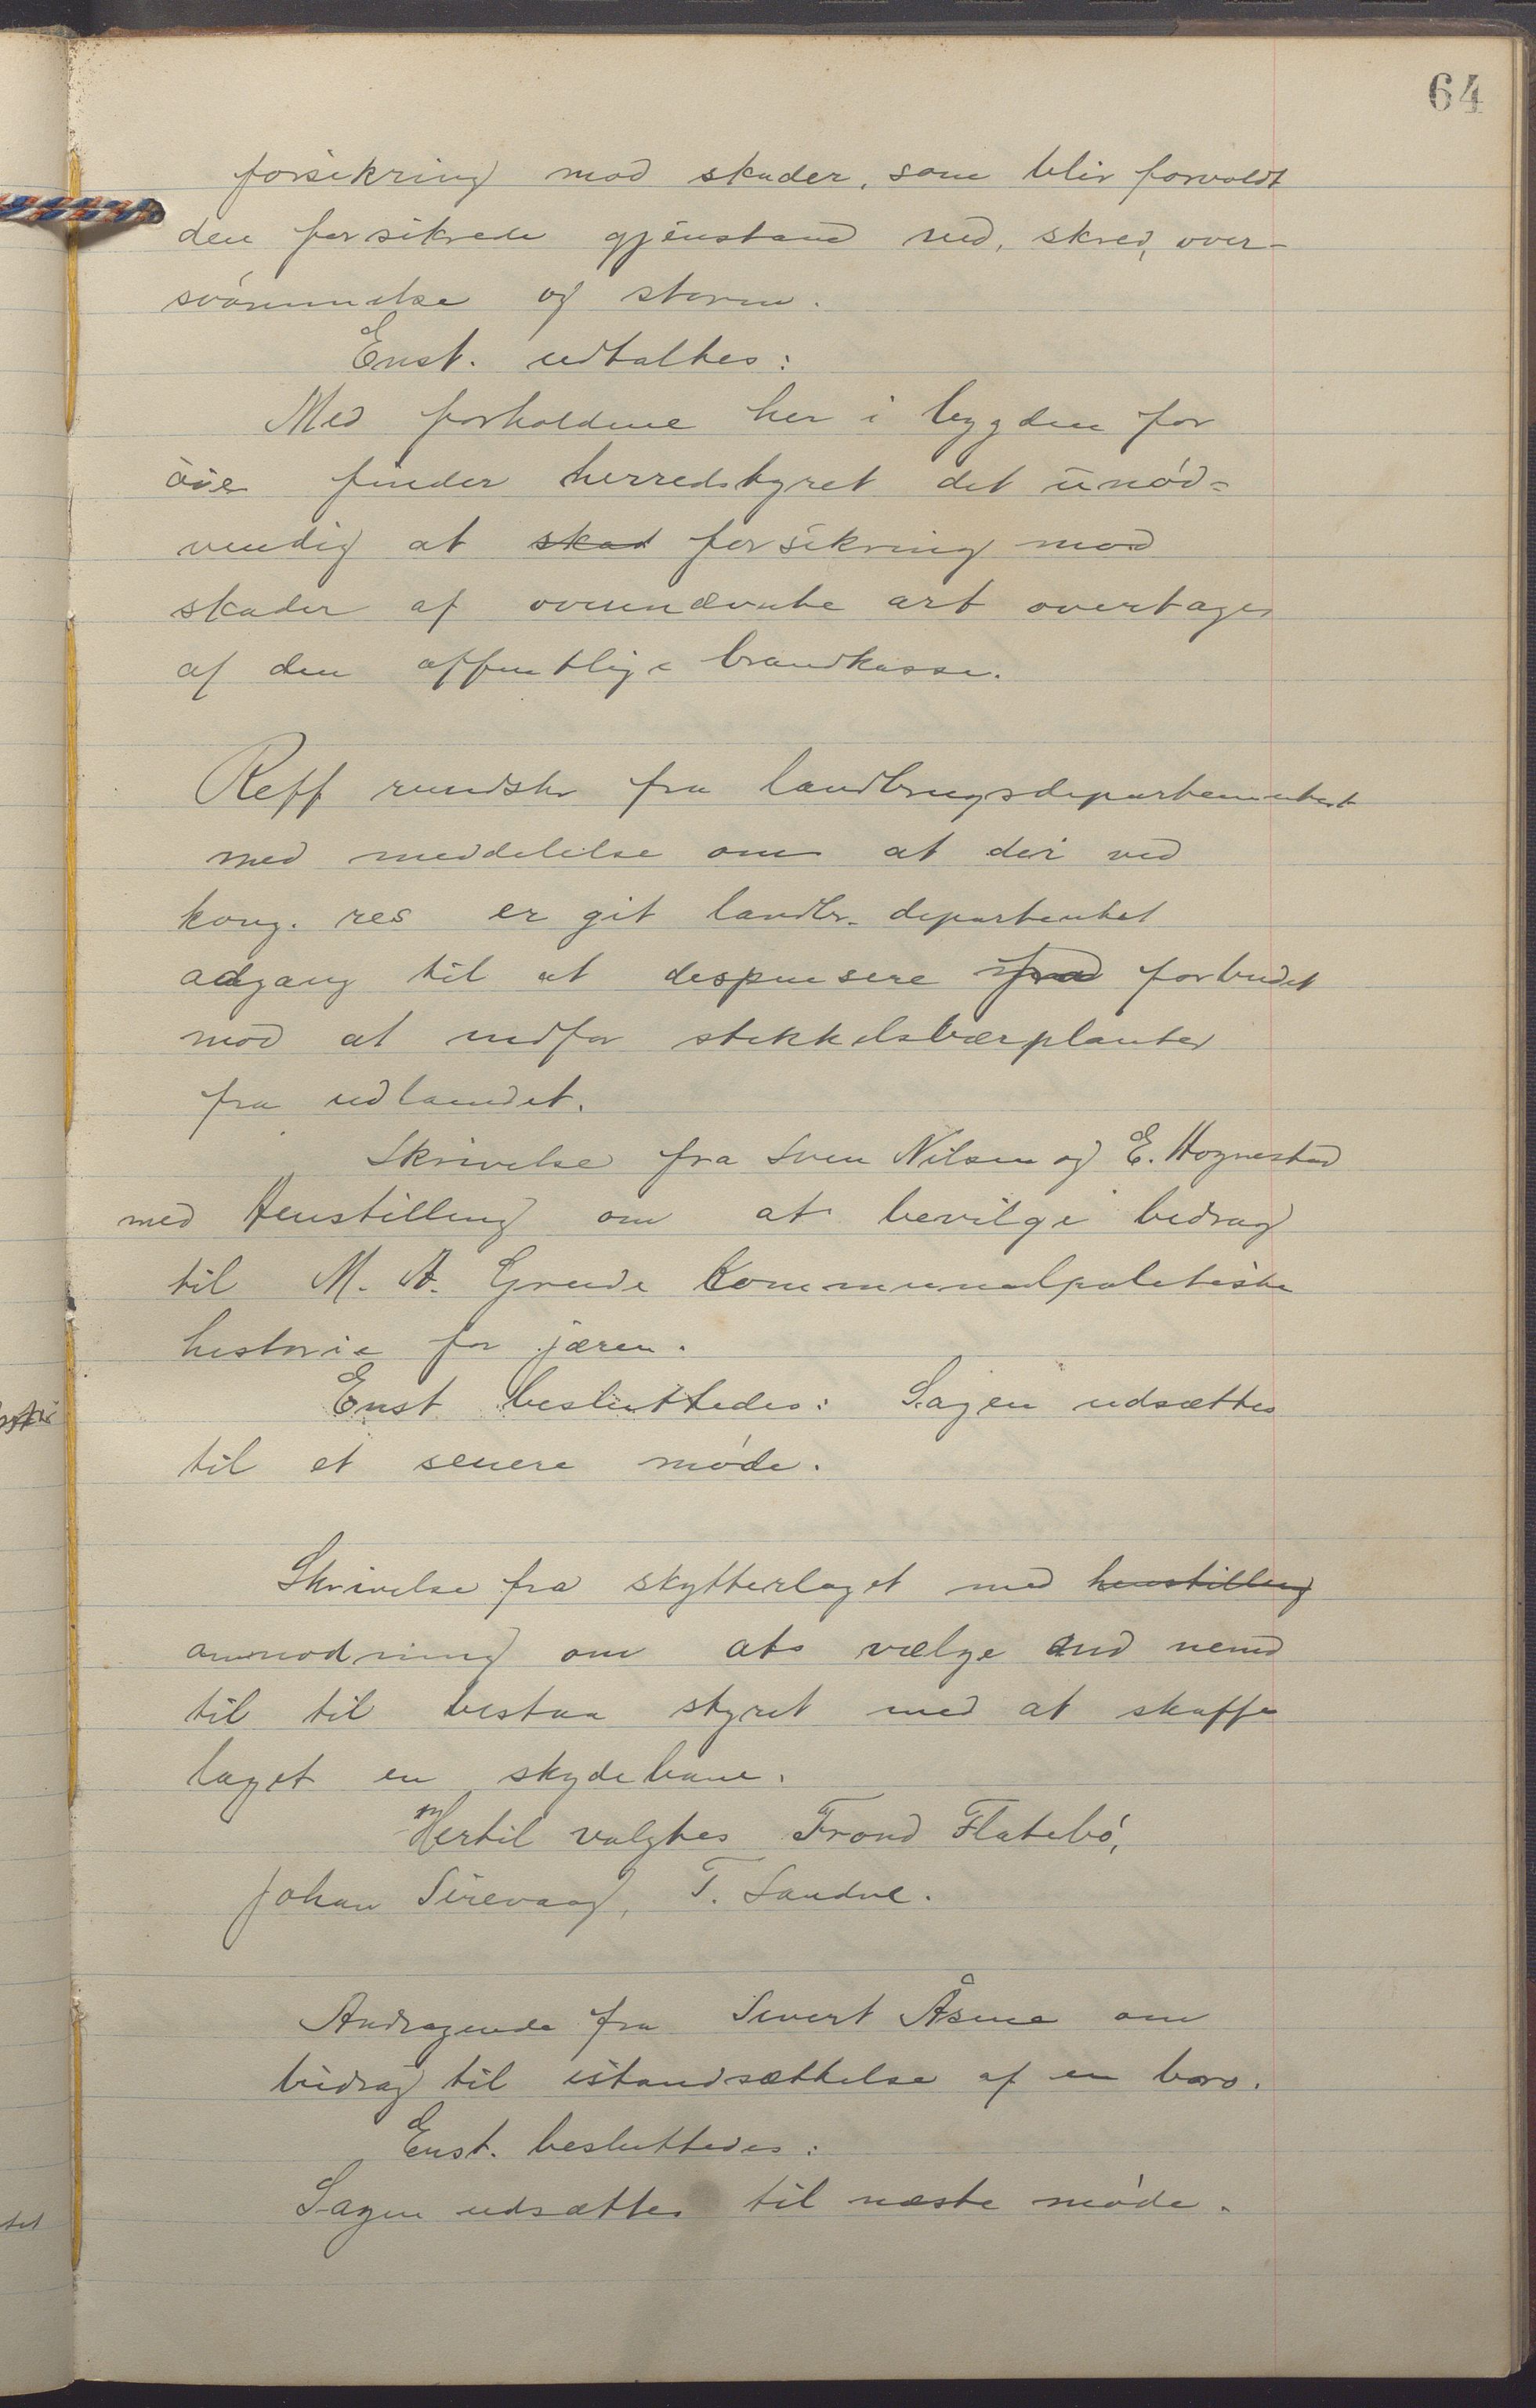 64
forsikring mod skader, som blir forvoldt
den forsikrede gjenstand ved, skred, over-
svömmelse og storm.
Enst. udtaltes:
Med forholdene her i bygden for
öie finder herredstyret det unöd=
vendig at skad forsikring mod
skader af ovennævnte art overtages
af den offentlige brandkasse.
Reff rundskr fra landbrugsdepartementet
med meddelelse om at der ved
kong. res er git landbr. departentet
adgang til at despensere fra forbudet
mod at indför stikkelsbærplanter
fra udlandet.
Skrivelse fra Sven Nilsen og E. Hognestad
med Henstilling om at bevilge bidrag
til M. A. Grude Kommunalpolitiske
historie for jæren.
Enst besluttedes: Sagen udsættes
til et senere möde.
Skrivelse fra skytterlaget med henstilling
anmodning om at vælge end nemd
til til bestaa styret med at skaffe
laget en skydebane.
Hertil valgtes Trond Flatebö,
Johan Sirevaag, T. Sandve.
Andragende fra Sivert Åsme om
bidrag til istandsættelse af en bro.
Enst. besluttedes:
Sagen udsættes til næste möde.